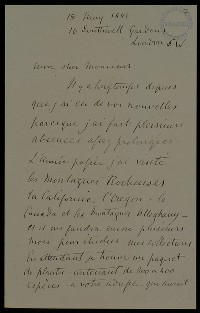 18 May 1891
16 Southwell Gardens
London SW
Mon cher Monsieur
Il y a longtemps depuis
que j'ai eu de vos nouvelles
parceque j'ai fait plusieurs
absences assez prolongées
L'année passée j'ai visité
les Montagnes Rocheuses
la Californie, l'Oregon - le
Canada et les Montagnes Alleghany -
et il me faudra encore plusieurs
mois pour étudier mes collections
En attendant je trouve un paquet
de plants contenant de 300 a 400
espèces - a votre adresse qui